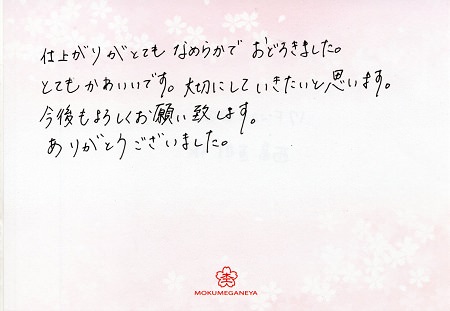 仕上がりがとてもなめらかでおどろきました。
とてもかわいいです。大切にしていきたいと思います。
今後もよろしくお願い致します。
ありがとうございました。
MOKUMEGANEYA